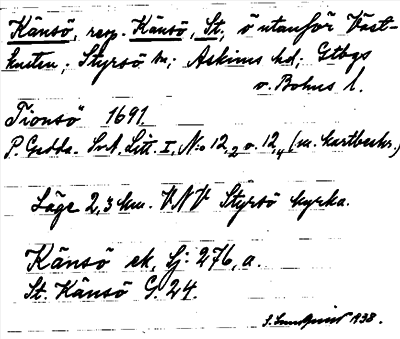 Känsö, resp. Känsö, St., ö utanför Väst-
kusten; Styrsö sn; Askims hd; Gtbgs
o. Bohus l.
Tionsö 1691.
P. Gedda. SvA. Litt. I, N:o 12,2 o. 12,4 (m. kartbeskr.)
Läge 2,3 km. V.N.V. Styrsö kyrka.
Känsö ek, Sj: 276, a.
St. Känsö G. 24.
S. Lundquist 1938.